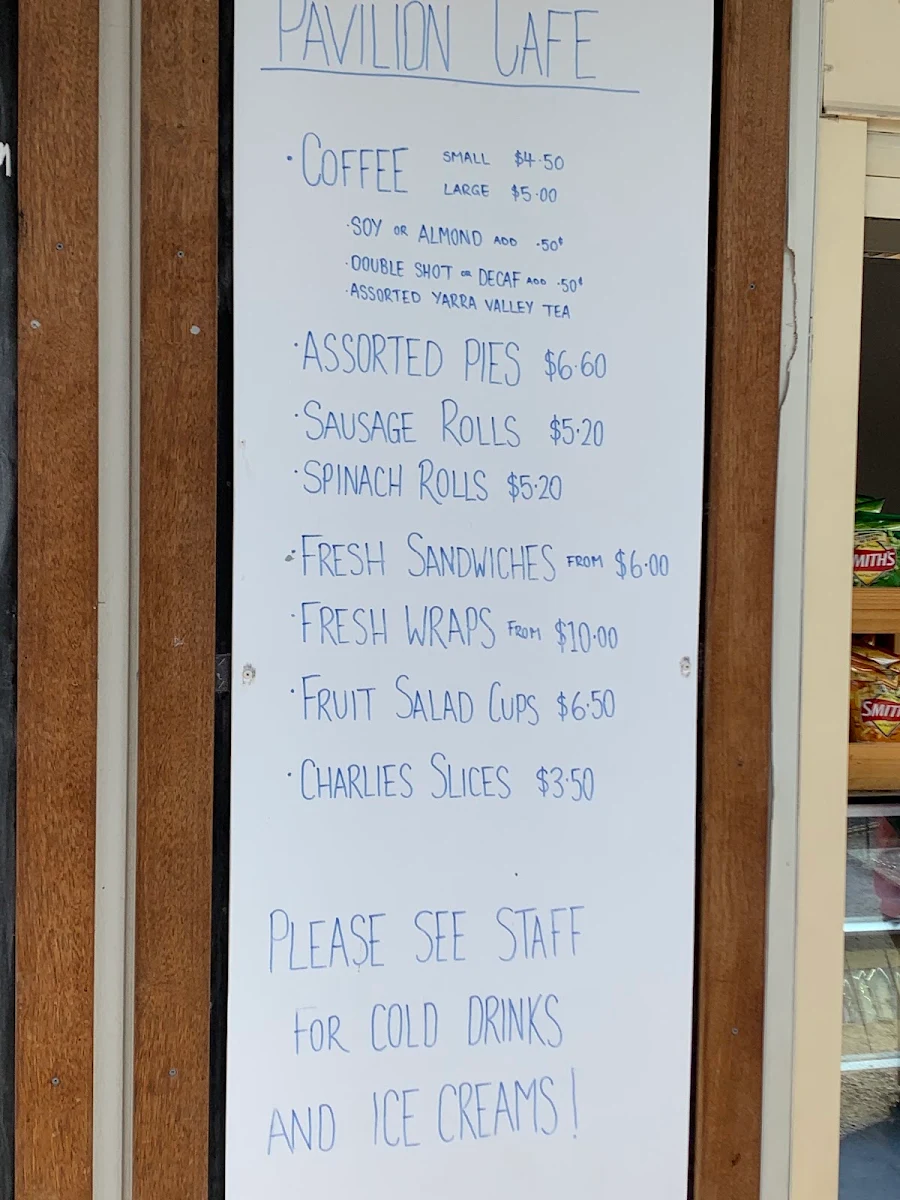 PAVILION CAFE
· COFFEE SMALL $4·50
LARGE $5·00
·SOY OR ALMOND ADD ·50¢
·DOUBLE SHOT OR DECAF ADD ·50¢
·ASSORTED YARRA VALLEY TEA
·ASSORTED PIES $6·60
·SAUSAGE ROLLS $5·20
·SPINACH ROLLS $5·20
·FRESH SANDWICHES FROM $6·00
·FRESH WRAPS FROM $10·00
·FRUIT SALAD CUPS $6·50
·CHARLIES SLICES $3·50
PLEASE SEE STAFF
FOR COLD DRINKS
AND ICE CREAMS!
MITH'S
SMIT